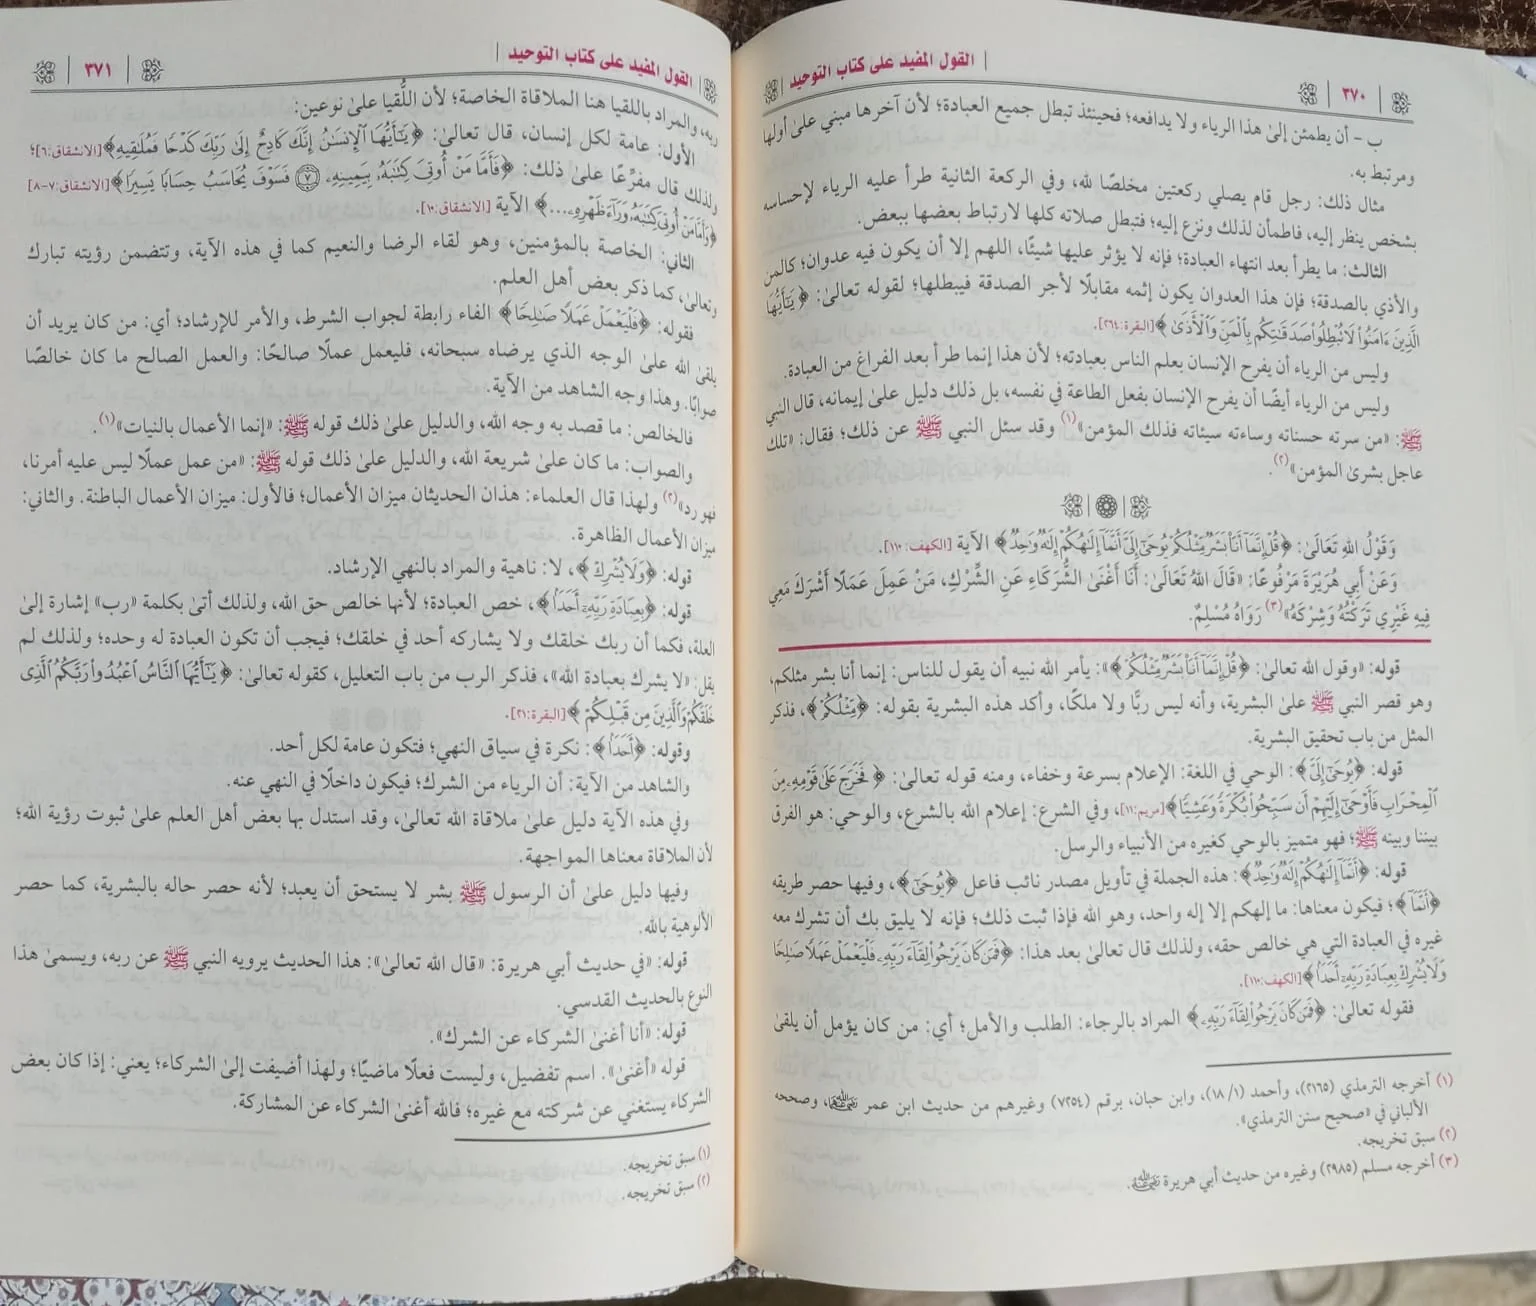 ٣٧٠
القول المفيد على كتاب التوحيد
ب - أن يطمئن إلىٰ هذا الرياء ولا يدافعه؛ فحينئذ تبطل جميع العبادة؛ لأن آخرها مبني علىٰ أولها
ومرتبط به.
مثال ذلك: رجل قام يصلي ركعتين مخلصًا لله، وفي الركعة الثانية طرأ عليه الرياء لإحساسه
بشخص ينظر إليه، فاطمأن لذلك ونزع إليه؛ فتبطل صلاته كلها لارتباط بعضها ببعض.
الثالث: ما يطرأ بعد انتهاء العبادة؛ فإنه لا يؤثر عليها شيئًا، اللهم إلا أن يكون فيه عدوان؛ كالمن
والأذي بالصدقة؛ فإن هذا العدوان يكون إثمه مقابلًا لأجر الصدقة فيبطلها؛ لقوله تعالىٰ: ﴿يَٰٓأَيُّهَا
ٱلَّذِينَ ءَامَنُوا۟ لَا تُبْطِلُوا۟ صَدَقَٰتِكُم بِٱلْمَنِّ وَٱلْأَذَىٰ﴾ [البقرة:٢٦٤].
وليس من الرياء أن يفرح الإنسان بعلم الناس بعبادته؛ لأن هذا إنما طرأ بعد الفراغ من العبادة.
وليس من الرياء أيضًا أن يفرح الإنسان بفعل الطاعة في نفسه، بل ذلك دليل علىٰ إيمانه، قال النبي
ﷺ: «من سرته حسناته وساءته سيئاته فذلك المؤمن»(١) وقد سئل النبي ﷺ عن ذلك؛ فقال: «تلك
عاجل بشرىٰ المؤمن»(٢).
وَقَوْلُ اللهِ تَعَالَىٰ: ﴿قُلْ إِنَّمَآ أَنَا۠ بَشَرٌ مِّثْلُكُمْ يُوحَىٰٓ إِلَىَّ أَنَّمَآ إِلَٰهُكُمْ إِلَٰهٌ وَٰحِدٌ﴾ الآية [الكهف: ١١٠].
وَعَنْ أَبِي هُرَيْرَةَ مَرْفُوعًا: «قَالَ اللهُ تَعَالَىٰ: أَنَا أَغْنَىٰ الشُّرَكَاءِ عَنِ الشِّرْكِ، مَنْ عَمِلَ عَمَلًا أَشْرَكَ مَعِي
فِيهِ غَيْرِي تَرَكْتُهُ وَشِرْكَهُ»(٣) رَوَاهُ مُسْلِمٌ.
قوله: «وقول الله تعالىٰ: ﴿قُلْ إِنَّمَآ أَنَا۠ بَشَرٌ مِّثْلُكُمْ﴾»: يأمر الله نبيه أن يقول للناس: إنما أنا بشر مثلكم،
وهو قصر النبي ﷺ علىٰ البشرية، وأنه ليس ربًّا ولا ملكًا، وأكد هذه البشرية بقوله: ﴿مِّثْلُكُمْ﴾، فذكر
المثل من باب تحقيق البشرية.
قوله: ﴿يُوحَىٰٓ إِلَىَّ﴾: الوحي في اللغة: الإعلام بسرعة وخفاء، ومنه قوله تعالىٰ: ﴿فَخَرَجَ عَلَىٰ قَوْمِهِۦ مِنَ
ٱلْمِحْرَابِ فَأَوْحَىٰٓ إِلَيْهِمْ أَن سَبِّحُوا۟ بُكْرَةً وَعَشِيًّا﴾ [مريم:١١]، وفي الشرع: إعلام الله بالشرع، والوحي: هو الفرق
بيننا وبينه ﷺ؛ فهو متميز بالوحي كغيره من الأنبياء والرسل.
قوله: ﴿أَنَّمَآ إِلَٰهُكُمْ إِلَٰهٌ وَٰحِدٌ﴾: هذه الجملة في تأويل مصدر نائب فاعل ﴿يُوحَىٰٓ﴾، وفيها حصر طريقه
﴿أَنَّمَآ﴾؛ فيكون معناها: ما إلهكم إلا إله واحد، وهو الله فإذا ثبت ذلك؛ فإنه لا يليق بك أن تشرك معه
غيره في العبادة التي هي خالص حقه، ولذلك قال تعالىٰ بعد هذا: ﴿فَمَن كَانَ يَرْجُوا۟ لِقَآءَ رَبِّهِۦ فَلْيَعْمَلْ عَمَلًا صَٰلِحًا
وَلَا يُشْرِكْ بِعِبَادَةِ رَبِّهِۦٓ أَحَدًۢا﴾ [الكهف:١١٠].
فقوله تعالىٰ: ﴿فَمَن كَانَ يَرْجُوا۟ لِقَآءَ رَبِّهِۦ﴾ المراد بالرجاء: الطلب والأمل؛ أي: من كان يؤمل أن يلقىٰ
(١) أخرجه الترمذي (٢١٦٥)، وأحمد (١/ ١٨)، وابن حبان، برقم (٧٢٥٤) وغيرهم من حديث ابن عمر رضي الله عنهما، وصححه
الألباني في «صحيح سنن الترمذي».
(٢) سبق تخريجه.
(٣) أخرجه مسلم (٢٩٨٥) وغيره من حديث أبي هريرة رضي الله عنه.
القول المفيد على كتاب التوحيد
٣٧١
ربه، والمراد باللقيا هنا الملاقاة الخاصة؛ لأن اللُّقيا علىٰ نوعين:
الأول: عامة لكل إنسان، قال تعالىٰ: ﴿يَٰٓأَيُّهَا ٱلْإِنسَٰنُ إِنَّكَ كَادِحٌ إِلَىٰ رَبِّكَ كَدْحًا فَمُلَٰقِيهِ﴾ [الانشقاق:٦]؛
ولذلك قال مفرِّعًا علىٰ ذلك: ﴿فَأَمَّا مَنْ أُوتِىَ كِتَٰبَهُۥ بِيَمِينِهِۦ ٧ فَسَوْفَ يُحَاسَبُ حِسَابًا يَسِيرًا﴾ [الانشقاق:٧-٨]
﴿وَأَمَّا مَنْ أُوتِىَ كِتَٰبَهُۥ وَرَآءَ ظَهْرِهِۦ...﴾ الآية [الانشقاق:١٠].
الثاني: الخاصة بالمؤمنين، وهو لقاء الرضا والنعيم كما في هذه الآية، وتتضمن رؤيته تبارك
وتعالىٰ، كما ذكر بعض أهل العلم.
فقوله: ﴿فَلْيَعْمَلْ عَمَلًا صَٰلِحًا﴾ الفاء رابطة لجواب الشرط، والأمر للإرشاد؛ أي: من كان يريد أن
يلقىٰ الله علىٰ الوجه الذي يرضاه سبحانه، فليعمل عملًا صالحًا: والعمل الصالح ما كان خالصًا
صوابًا. وهذا وجه الشاهد من الآية.
فالخالص: ما قصد به وجه الله، والدليل علىٰ ذلك قوله ﷺ: «إنما الأعمال بالنيات»(١).
والصواب: ما كان علىٰ شريعة الله، والدليل علىٰ ذلك قوله ﷺ: «من عمل عملًا ليس عليه أمرنا،
فهو رد»(٢) ولهذا قال العلماء: هذان الحديثان ميزان الأعمال؛ فالأول: ميزان الأعمال الباطنة. والثاني:
ميزان الأعمال الظاهرة.
قوله: ﴿وَلَا يُشْرِكْ﴾، لا: ناهية والمراد بالنهي الإرشاد.
قوله: ﴿بِعِبَادَةِ رَبِّهِۦٓ أَحَدًۢا﴾، خص العبادة؛ لأنها خالص حق الله، ولذلك أتىٰ بكلمة «رب» إشارة إلىٰ
العلة، فكما أن ربك خلقك ولا يشاركه أحد في خلقك؛ فيجب أن تكون العبادة له وحده؛ ولذلك لم
يقل: «لا يشرك بعبادة الله»، فذكر الرب من باب التعليل، كقوله تعالىٰ: ﴿يَٰٓأَيُّهَا ٱلنَّاسُ ٱعْبُدُوا۟ رَبَّكُمُ ٱلَّذِى
خَلَقَكُمْ وَٱلَّذِينَ مِن قَبْلِكُمْ﴾ [البقرة:٢١].
وقوله: ﴿أَحَدًۢا﴾: نكرة في سياق النهي؛ فتكون عامة لكل أحد.
والشاهد من الآية: أن الرياء من الشرك؛ فيكون داخلًا في النهي عنه.
وفي هذه الآية دليل علىٰ ملاقاة الله تعالىٰ، وقد استدل بها بعض أهل العلم علىٰ ثبوت رؤية الله؛
لأن الملاقاة معناها المواجهة.
وفيها دليل علىٰ أن الرسول ﷺ بشر لا يستحق أن يعبد؛ لأنه حصر حاله بالبشرية، كما حصر
الألوهية بالله.
قوله: «في حديث أبي هريرة: «قال الله تعالىٰ»: هذا الحديث يرويه النبي ﷺ عن ربه، ويسمىٰ هذا
النوع بالحديث القدسي.
قوله: «أنا أغنىٰ الشركاء عن الشرك».
قوله «أغنىٰ». اسم تفضيل، وليست فعلًا ماضيًا؛ ولهذا أضيفت إلىٰ الشركاء؛ يعني: إذا كان بعض
الشركاء يستغني عن شركته مع غيره؛ فالله أغنىٰ الشركاء عن المشاركة.
(١) سبق تخريجه.
(٢) سبق تخريجه.